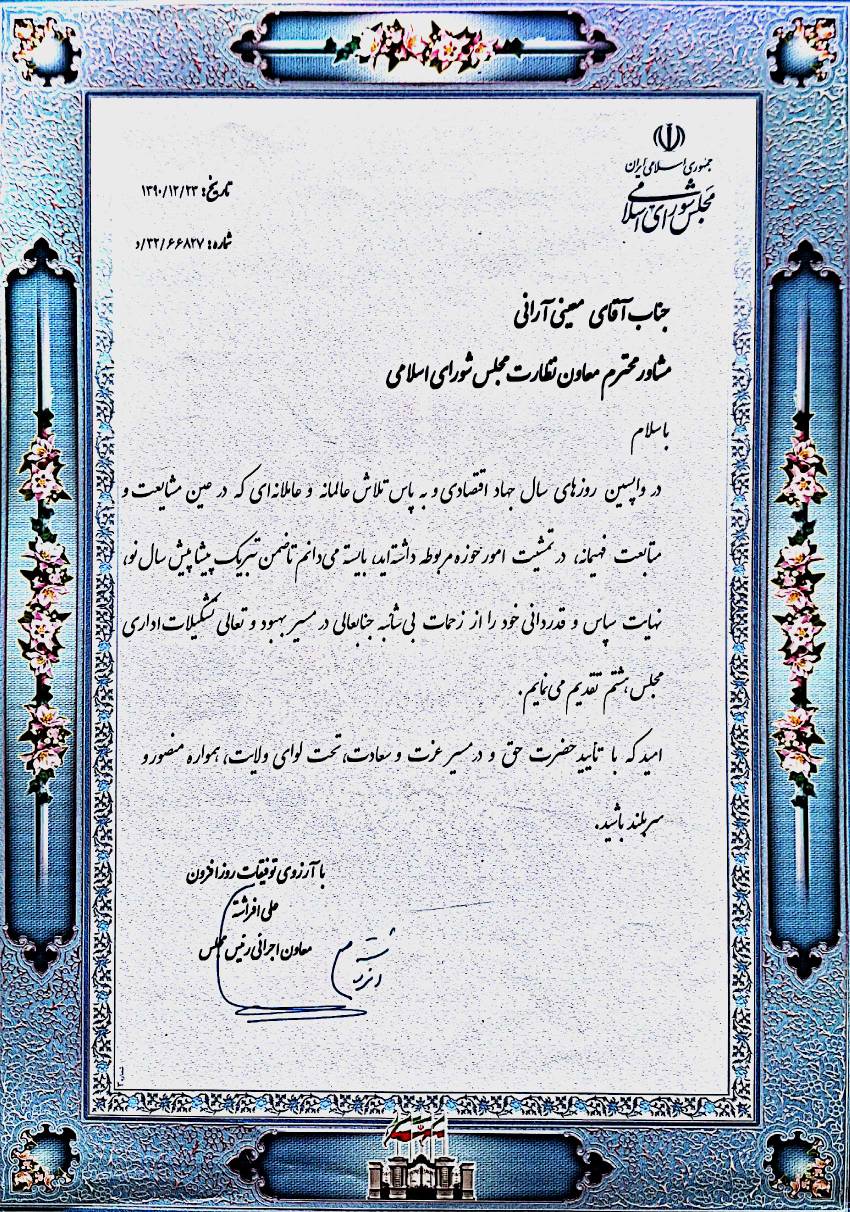 جمهوری اسلامی ایران
مجلس شورای اسلامی
تاریخ: ۱۳۹۰/۱۲/۲۳
شماره: ۳۲/۶۶۸۲۷/د
جناب آقای معینی آرانی
مشاور محترم معاون نظارت مجلس شورای اسلامی
با سلام
در واپسین روزهای سال جهاد اقتصادی و به پاس تلاش عالمانه و عاملانه‌ای که در عین مشایعت و
متابعت فهیمانه، در تمشیت امور حوزه مربوطه داشته‌اید، بایسته می‌دانم تا ضمن تبریک پیشاپیش سال نو،
نهایت سپاس و قدردانی خود را از زحمات بی‌شائبه جنابعالی در مسیر بهبود و تعالی تشکیلات اداری
مجلس هشتم تقدیم می‌نمایم.
امید که با تأیید حضرت حق و در مسیر عزت و سعادت، تحت لوای ولایت، همواره منصور و
سربلند باشید.
با آرزوی توفیقات روزافزون
علی افراشته
معاون اجرائی رئیس مجلس